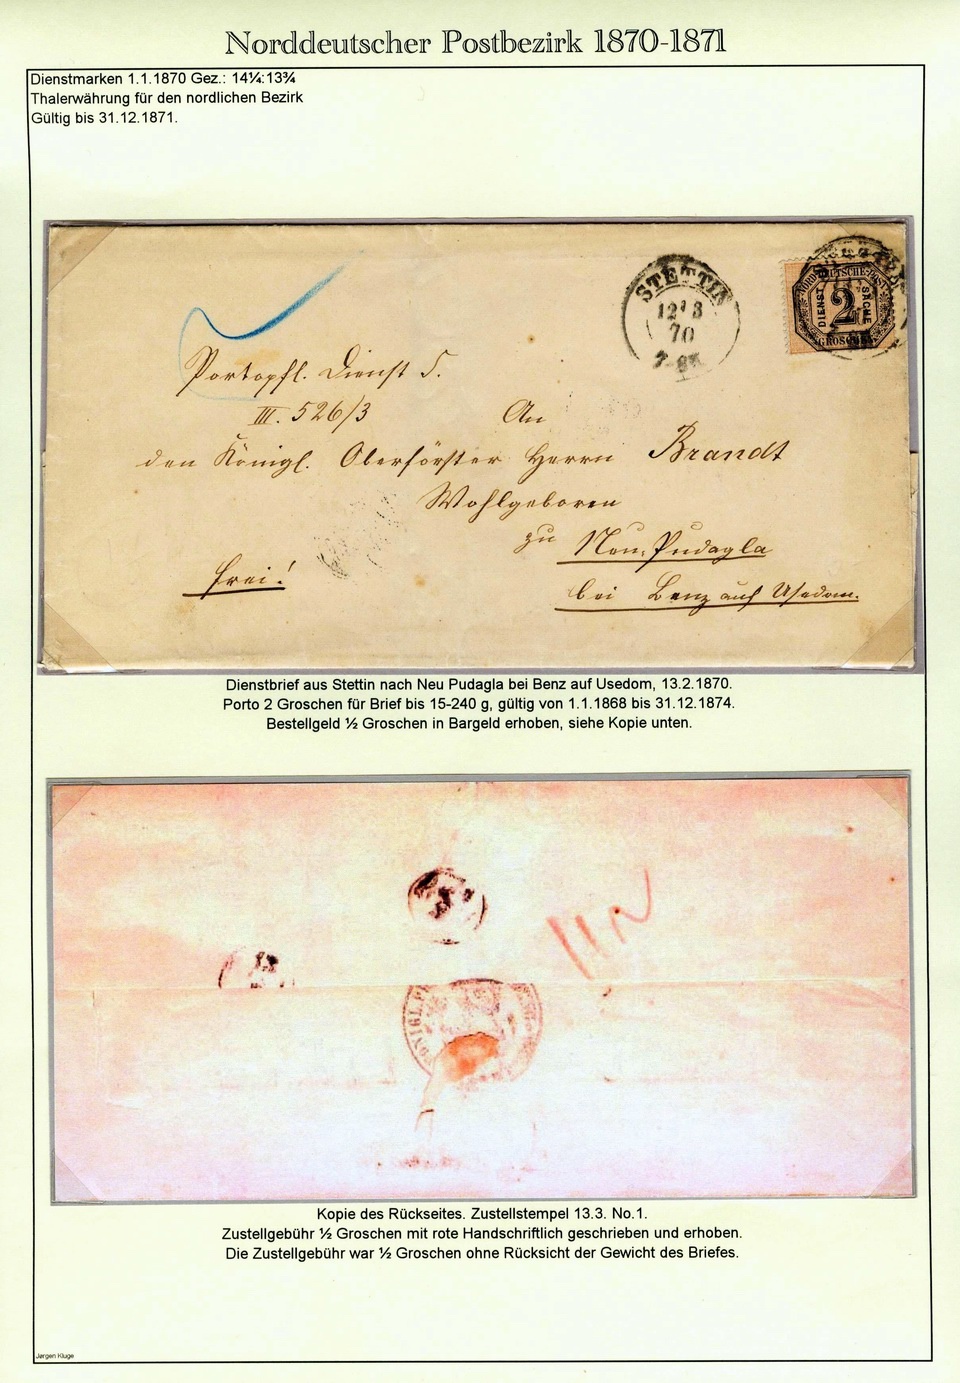 Norddeutscher Postbezirk 1870-1871
Dienstmarken 1.1.1870 Gez.: 14¼:13¾
Thalerwährung für den nordlichen Bezirk
Gültig bis 31.12.1871.
STETTIN
12 3
70
NORDDEUTSCHE POST
DIENST 2 SACHE
GROSCHEN
Portopfl. Dienst S.
III. 526/3
An
den Königl. Oberförster Herrn Brandt
Wohlgeboren
zu Neu-Pudagla
frei!
bei Benz auf Usedom.
Dienstbrief aus Stettin nach Neu Pudagla bei Benz auf Usedom, 13.2.1870.
Porto 2 Groschen für Brief bis 15-240 g, gültig von 1.1.1868 bis 31.12.1874.
Bestellgeld ½ Groschen in Bargeld erhoben, siehe Kopie unten.
Kopie des Rückseites. Zustellstempel 13.3. No.1.
Zustellgebühr ½ Groschen mit rote Handschriftlich geschrieben und erhoben.
Die Zustellgebühr war ½ Groschen ohne Rücksicht der Gewicht des Briefes.
Jørgen Kluge